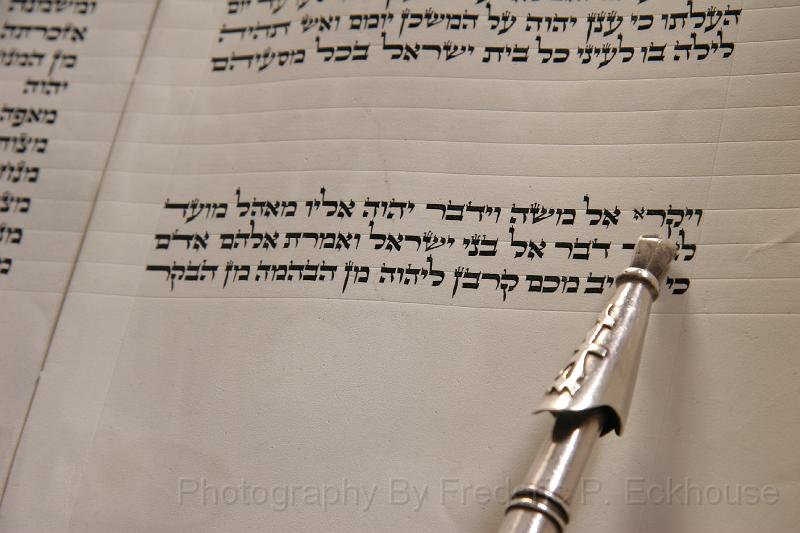 עד יום
העלתו כי ענן יהוה על המשכן יומם ואש תהיה
לילה בו לעיני כל בית ישראל בכל מסעיהם
ויקרא אל משה וידבר יהוה אליו מאהל מועד
דבר אל בני ישראל ואמרת אלהם אדם
כי מכם קרבן ליהוה מן הבהמה מן הבקר
ומשמנה
אזכרתה
מן
יהוה
מאפה
Photography By Frederic P. Eckhouse